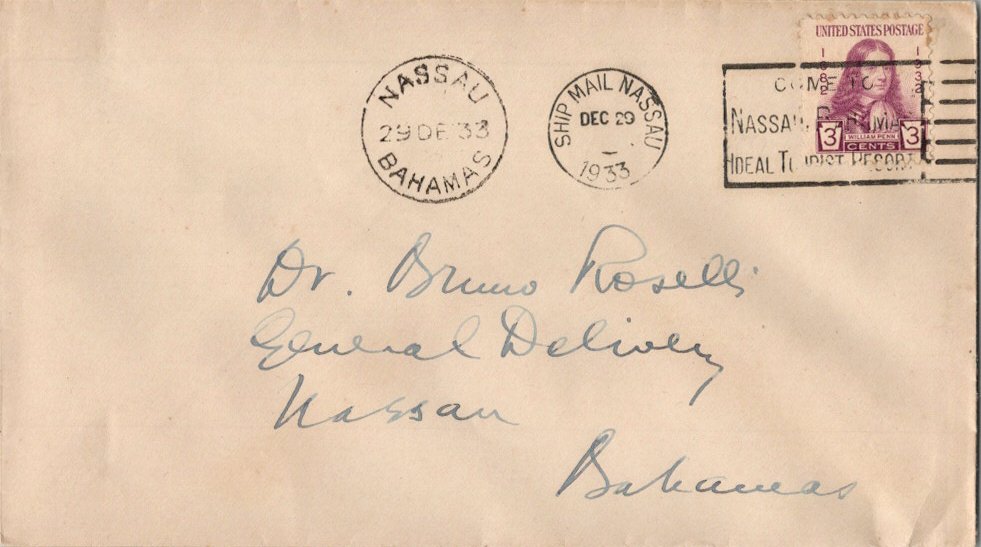 UNITED STATES POSTAGE
1682
1932
3
WILLIAM PENN
3
CENTS
NASSAU
29 DE 33
BAHAMAS
SHIP MAIL NASSAU
DEC 29
1933
COME TO
NASSAU, BAHAMA
IDEAL TOURIST RESORT
Dr. Bruno Roselli
General Delivery
Nassau
Bahamas